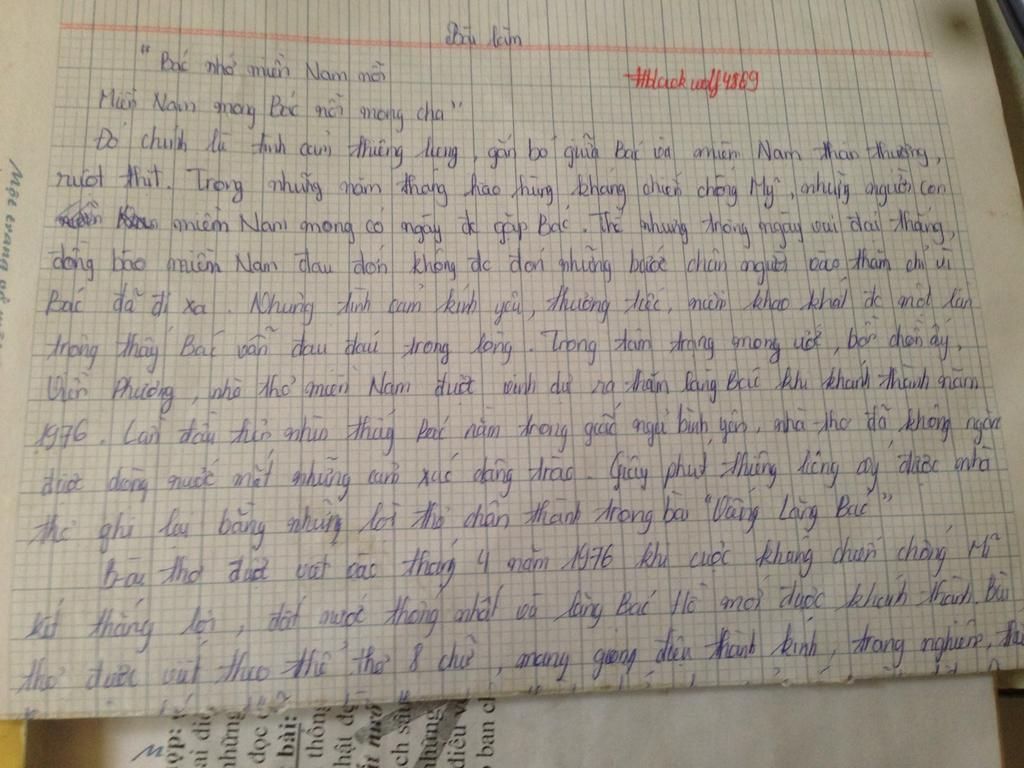 Bài làm
"Bác nhớ miền Nam nỗi
#blackwolf4869
Miền Nam mong Bác nỗi mong cha"
Đó chính là tình cảm thiêng liêng, gắn bó giữa Bác và miền Nam thân thương,
ruột thịt. Trong những năm tháng hào hùng kháng chiến chống Mỹ, những người con
miền Nam mong có ngày đc gặp Bác. Thế nhưng trong ngày vui đại thắng,
đồng bào miền Nam đau đớn không đc đón những bước chân người vào thăm chỉ vì
Bác đã đi xa. Nhưng tình cảm kính yêu, thương tiếc, niềm khao khát đc một lần
trông thấy Bác vẫn đau đáu trong lòng. Trong tâm trạng mong ước, bồn chồn ấy,
Viễn Phương, nhà thơ miền Nam được vinh dự ra thăm lăng Bác khi khánh thành năm
1976. Lần đầu tiên nhìn thấy Bác nằm trong giấc ngủ bình yên, nhà thơ đã không ngăn
được dòng nước mắt những cảm xúc dâng trào. Giây phút thiêng liêng ấy được nhà
thơ ghi lại bằng những lời thơ chân thành trong bài "Viếng Lăng Bác"
Bài thơ được viết vào tháng 4 năm 1976 khi cuộc kháng chiến chống Mĩ
kết thắng lợi, đất nước thống nhất và lăng Bác Hồ mới được khánh thành. Bài
thơ được viết theo thể thơ 8 chữ, mang giọng điệu thành kính, trang nghiêm,
ai diê
những
đọc c
bài:
thông
hật đ
ch sâu
nhưng
điều v
ban c